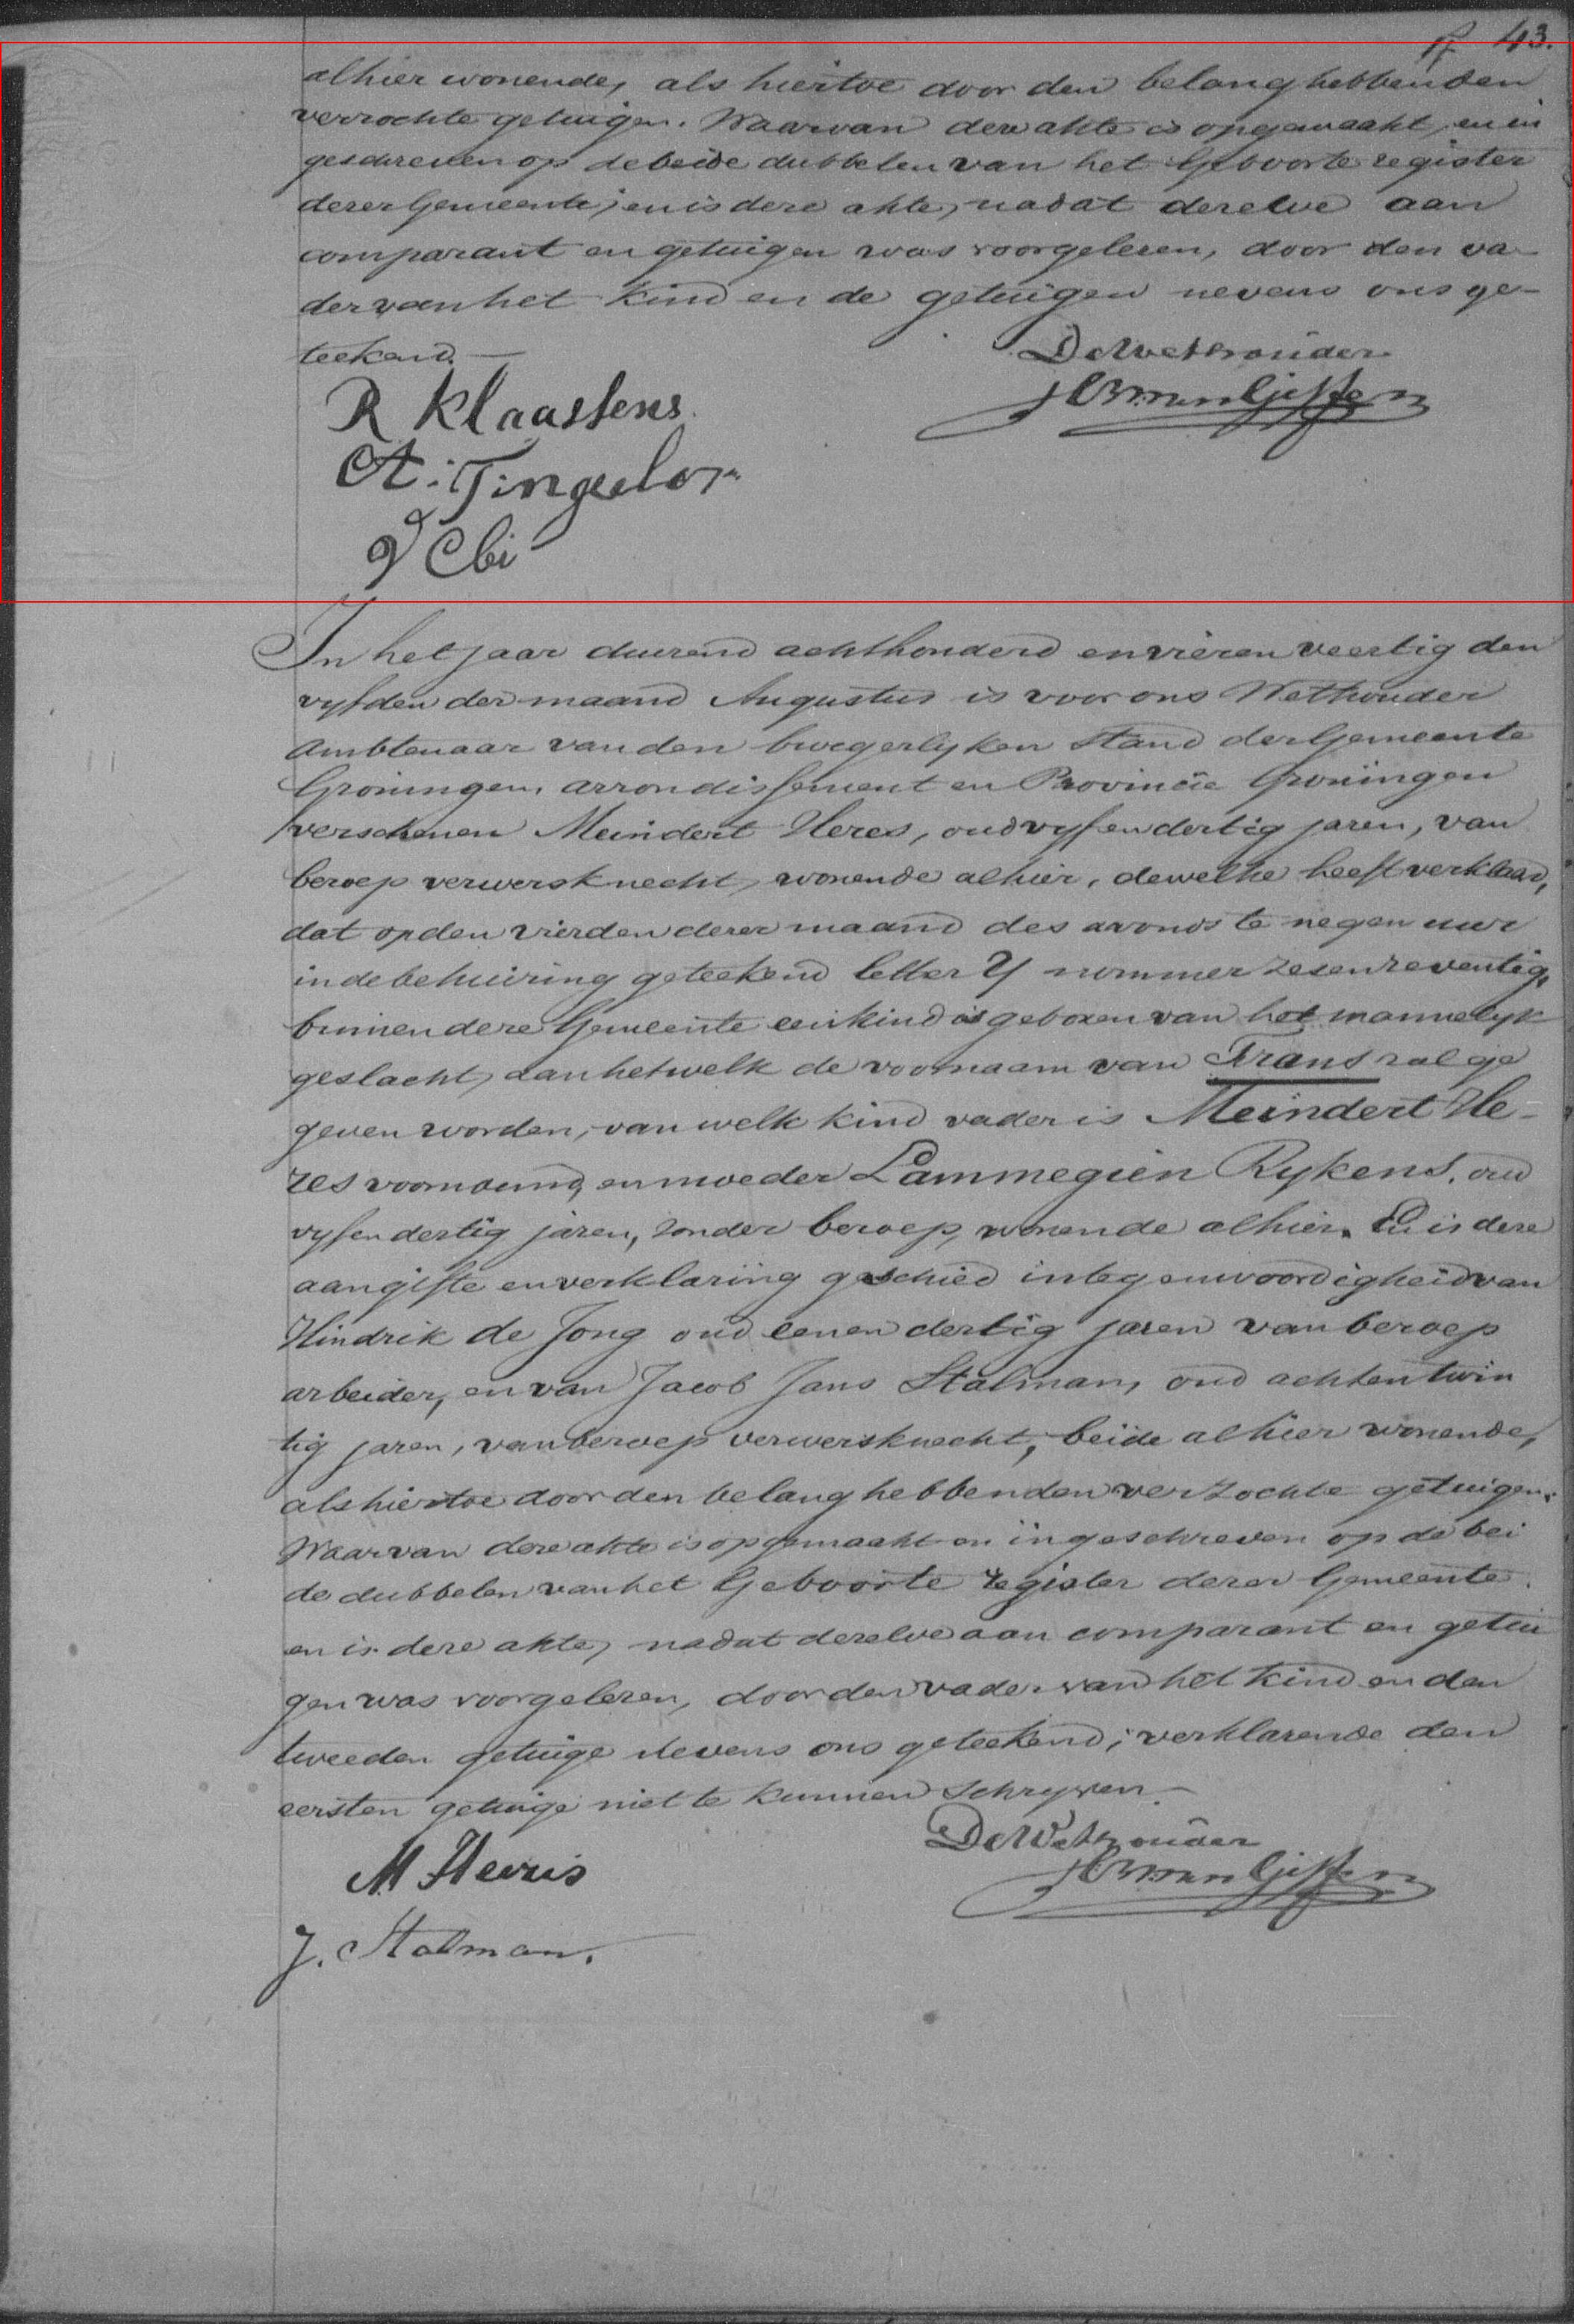 43.
alhier wonende, als hiertoe door den belanghebbenden
verzochte getuigen. Waarvan deze akte is opgemaakt, en in
geschreven op de beide dubbelen van het Geboorte register
dezer Gemeente; en is deze akte, nadat dezelve aan
comparant en getuigen was voorgelezen, door den va-
der van het kind en de getuigen nevens ons ge-
teekend.—
De Wethouder
R Klaassens.
A: Tingelor
In het jaar duizend achthonderd en vier en veertig den
vyfden der maand Augustus is voor ons Wethouder
Ambtenaar van den burgerlyken Stand der Gemeente
Groningen, arrondissement en Provincie Groningen
verschenen Meindert Heres, oud vyf en dertig jaren, van
beroep verwersknecht, wonende alhier, dewelke heeft verklaard,
dat op den vierden dezer maand des avonds te negen uur
in de behuizing geteekend letter Y nommer zes en zeventig,
binnen deze Gemeente een kind is geboren van het mannelyk
geslacht, aan hetwelk de voornaam van Frans zal ge
geven worden, van welk kind vader is Meindert He-
res voornoemd, en moeder Lammegien Rykens, oud
vyf en dertig jaren, zonder beroep, wonende alhier. En is deze
aangifte en verklaring geschied in tegenwoordigheid van
Hindrik de Jong oud een en dertig jaren van beroep
arbeider, en van Jacob Jans Stalman, oud acht en twin
tig jaren, van beroep verwersknecht, beide alhier wonende,
als hiertoe door den belanghebbenden verzochte getuigen.
Waarvan deze akte is opgemaakt en ingeschreven op de bei
de dubbelen van het Geboorte register dezer Gemeente.
en is deze akte, nadat dezelve aan comparant en getui
gen was voorgelezen, door den vader van het kind en den
tweeden getuige nevens ons geteekend; verklarende den
eersten getuige niet te kunnen schryven.—
De Wethouder
M Heeris
J. Stalman.